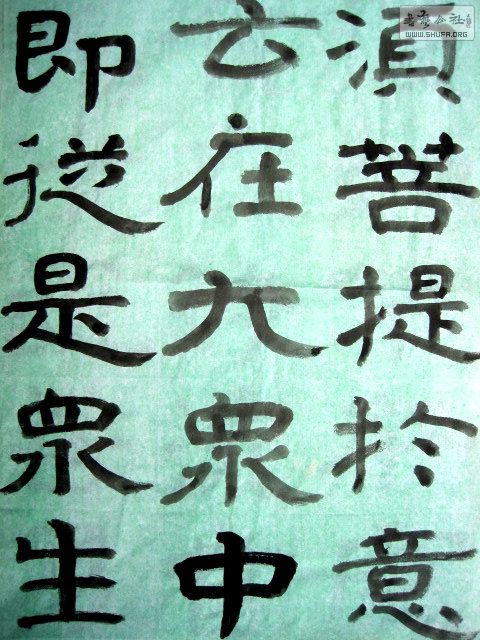 須菩提於意
云在大衆中
即從是衆生
WWW.SHUFA.ORG